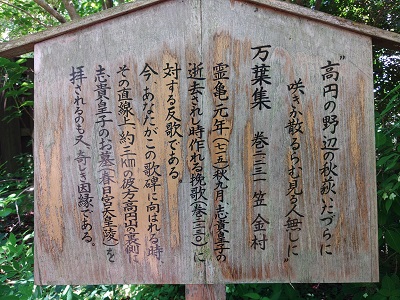 "高円の野辺の秋萩いたづらに
咲きか散るらむ見る人無しに"
万葉集 巻二―二三一 笠 金村
霊亀元年(七一五)秋九月、志貴皇子の
逝去されし時作れる挽歌(巻二―二三〇)に
対する反歌である。
今、あなたがこの歌碑に向はれる時、
その直線上約三kmの彼方高円山の裏側に
志貴皇子のお墓「春日宮天皇陵」を
拝されるのも又、奇しき因縁である。